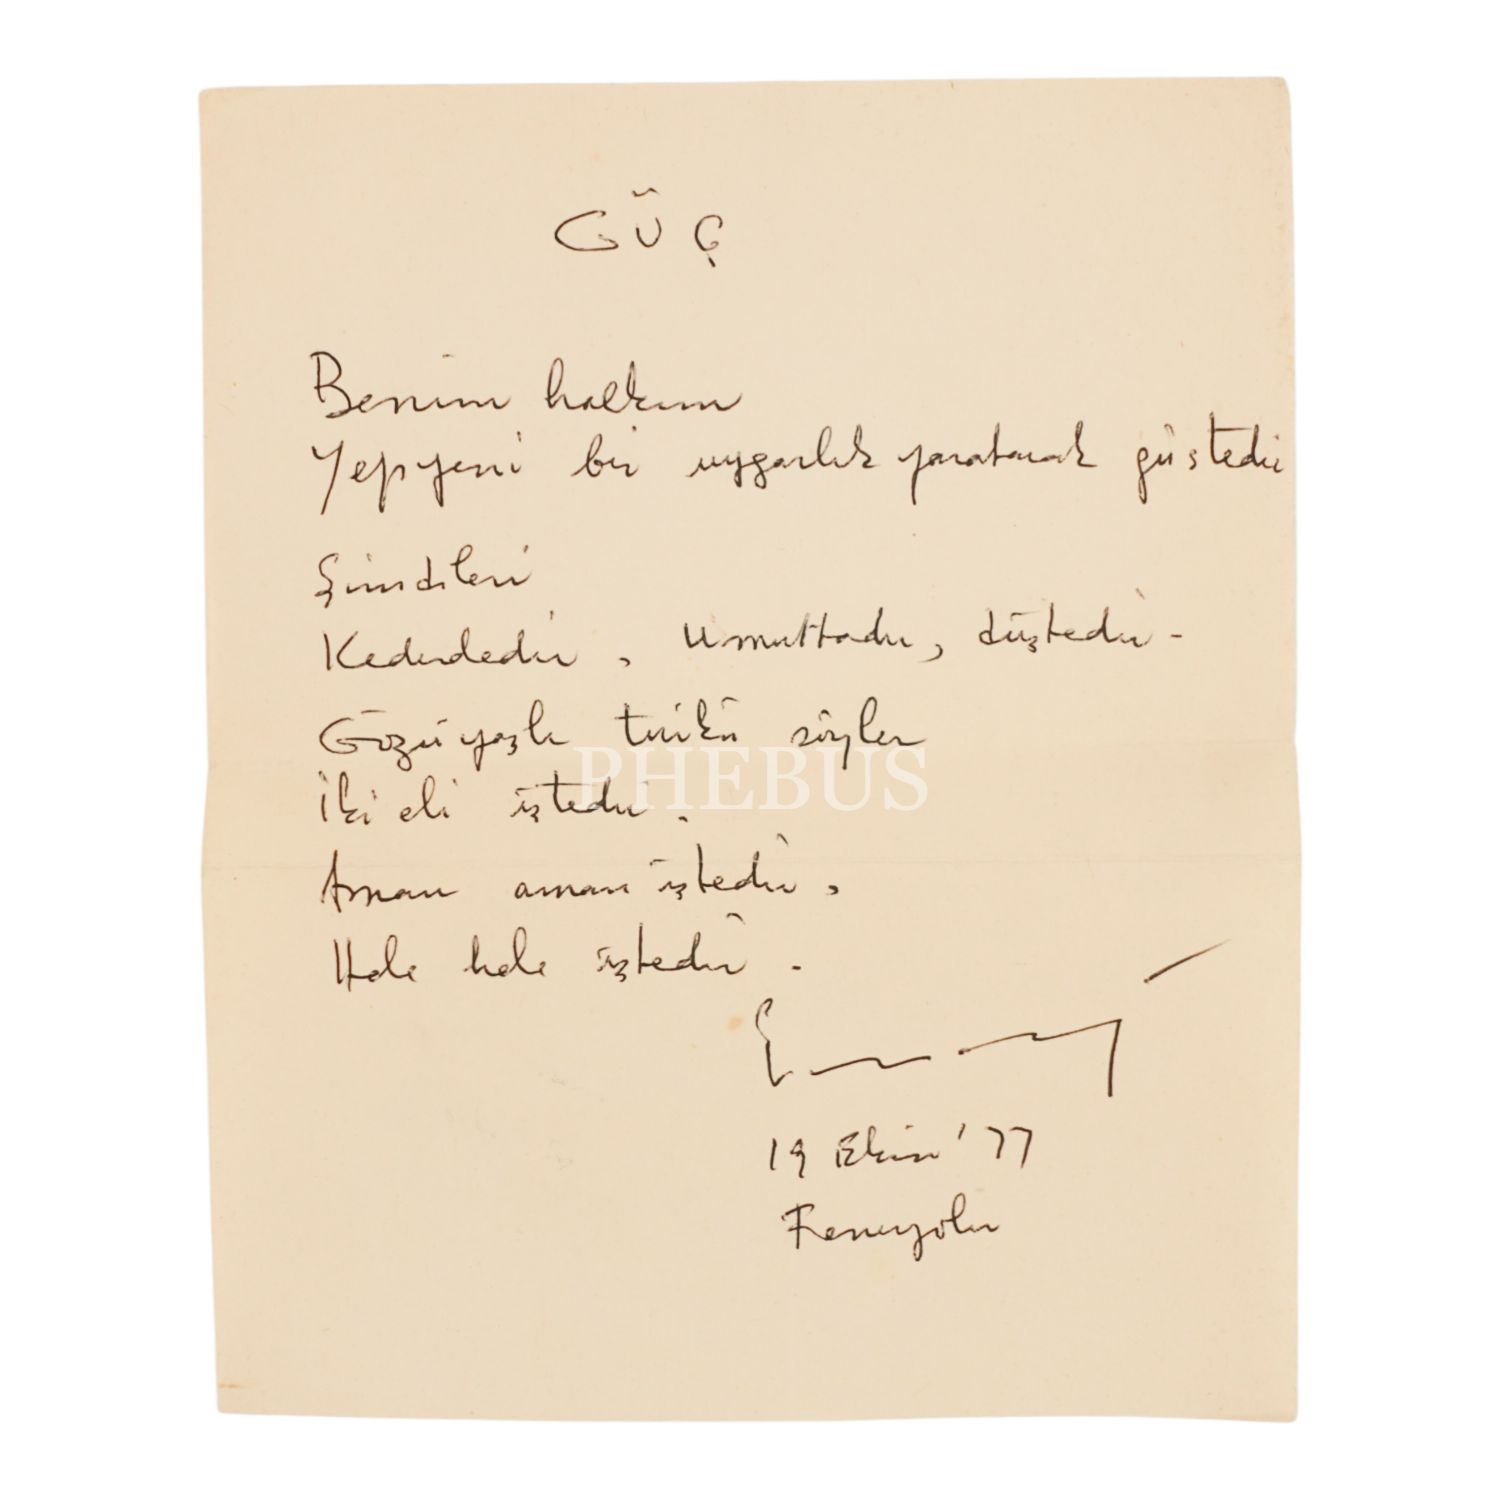 GÜÇ
Benim halkım
Yepyeni bir uygarlık yaratacak güçtedir
Şimdileri
Kederdedir, umuttadır, düştedir.
Gözüyaşlı türkü söyler
İki eli iştedir.
Aman aman iştedir,
Hele hele iştedir.
19 Ekim '77
Feneryolu
PHEBUS